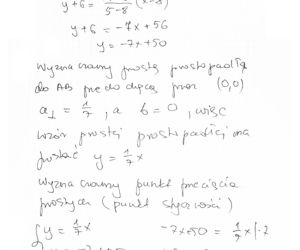 y+6 = /5-8 (x-8)
y+6 = -7x+56
y = -7x+50
Wyznaczamy prostą prostopadłą
do AB przechodzącą przez (0,0)
a⊥ = 1/7, a b=0, więc
wzór prostej prostopadłej ma
postać y = 1/7 x
Wyznaczamy punkt przecięcia
prostych (punkt styczności)
{y = 1/7 x -7x+50 = 1/7 x |·